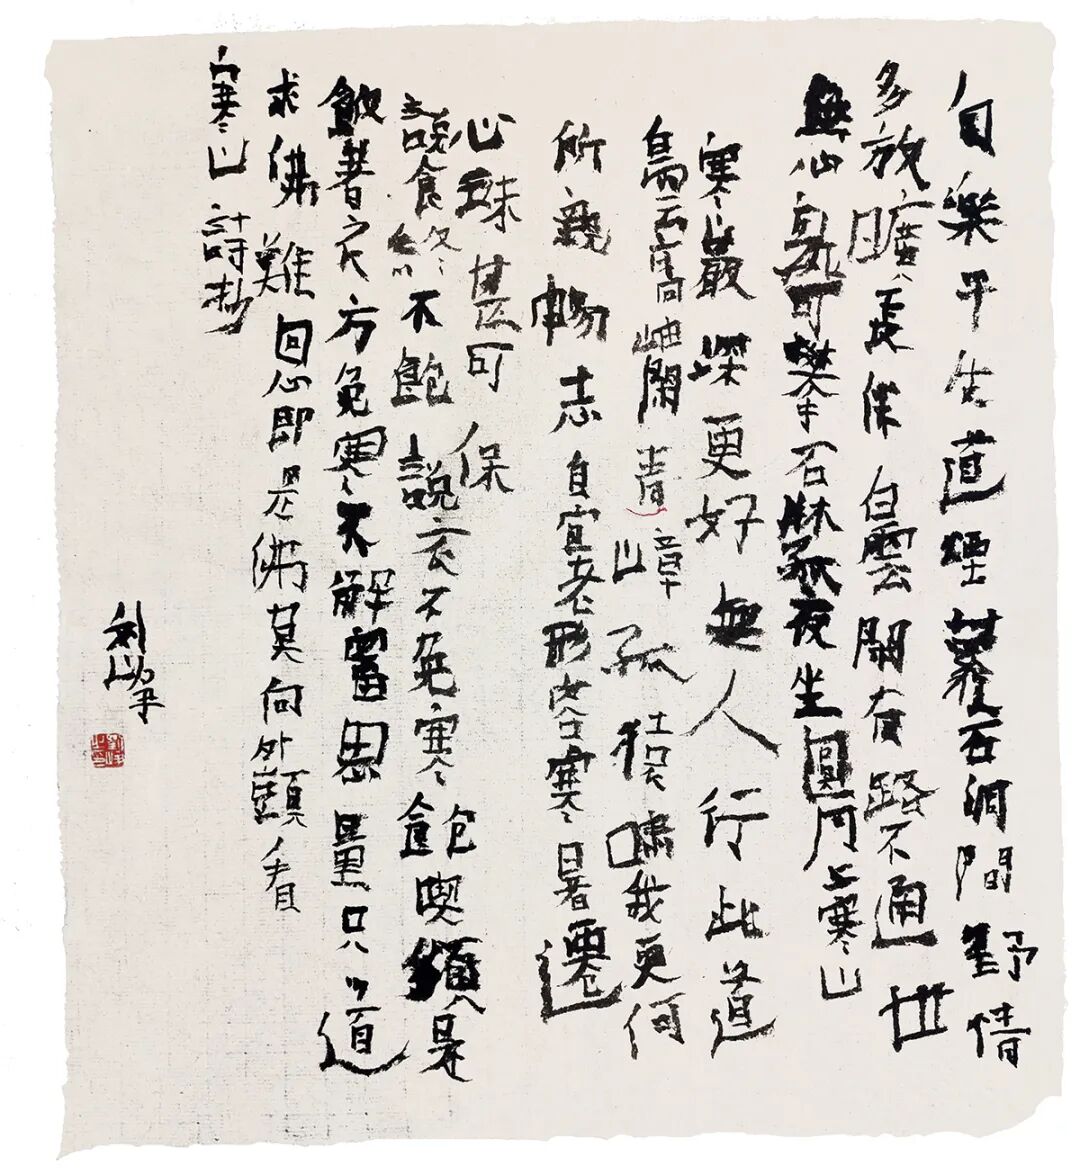 自樂平生道煙蘿石洞間野情
多放曠長伴白雲閒有路不通世
無心孰可攀石牀孤夜坐圓月上寒山
寒巖深更好無人行此道
白云高岫閒青嶂孤猿嘯我更何
所親暢志自宜老形容寒暑遷
心珠甚可保
說食終不飽說衣不免寒飽喫須是
飯著衣方免寒不解審思量只道
求佛難回心即是佛莫向外頭看
寒山詩抄